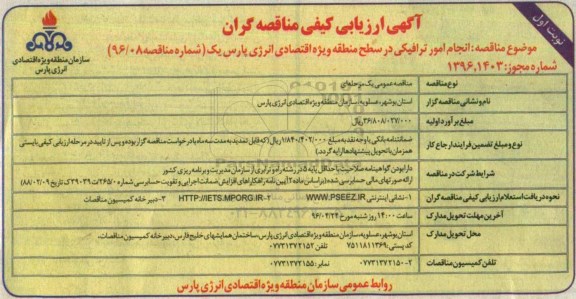 آگهی ارزیابی کیفی مناقصه گران
نوبت اول
سازمان منطقه ویژه اقتصادی
انرژی پارس
موضوع مناقصه: انجام امور ترافیکی در سطح منطقه ویژه اقتصادی انرژی پارس یک (شماره مناقصه ۹۶/۰۸)
شماره مجوز: ۱۳۹۶,۱۴۰۳
نوع مناقصه
مناقصه عمومی یک مرحله‌ای
نام و نشانی مناقصه گزار
استان بوشهر، عسلویه، سازمان منطقه ویژه اقتصادی انرژی پارس
مبلغ برآورد اولیه
۳۶/۸۰۸/۰۲۷/۰۰۰ ریال
نوع و مبلغ تضمین فرایند ارجاع کار
ضمانتنامه بانکی یا وجه نقد به مبلغ ۱/۸۴۰/۴۰۲/۰۰۰ ریال (که قابل تمدید به مدت سه ماه با درخواست مناقصه گزار بوده و پس از تایید در مرحله ارزیابی کیفی بایستی
همزمان با تحویل پیشنهادها ارایه گردد.)
شرایط شرکت در مناقصه
دارا بودن گواهینامه صلاحیت با حداقل پایه ۵ در رشته راه و ترابری از سازمان مدیریت و برنامه ریزی کشور
ارائه صورتهای مالی حسابرسی شده (بر اساس ماده ۲ آیین نامه راهکارهای افزایش ضمانت اجرایی و تقویت حسابرسی شماره
نحوه دریافت استعلام ارزیابی کیفی مناقصه گران
۱- نشانی اینترنتی WWW.PSEEZ.IR ۲- HTTP://IETS.MPORG.IR ۳- دبیرخانه کمیسیون مناقصات
آخرین مهلت تحویل مدارک
ساعت ۱۴:۰۰ روز شنبه مورخ ۹۶/۰۴/۲۴
محل تحویل مدارک
استان بوشهر، عسلویه، سازمان منطقه ویژه اقتصادی انرژی پارس، ساختمان همایشهای خلیج فارس، دبیرخانه کمیسیون مناقصات،
کد پستی: ۷۵۱۱۸۱۱۳۶۹ تلفن ۰۷۷۳۱۳۷۲۱۵۲
تلفن کمیسیون مناقصات
۰۷۷۳۱۳۷۲۱۵۰-۲ نمابر: ۰۷۷۳۱۳۷۲۱۵۵
روابط عمومی سازمان منطقه ویژه اقتصادی انرژی پارس